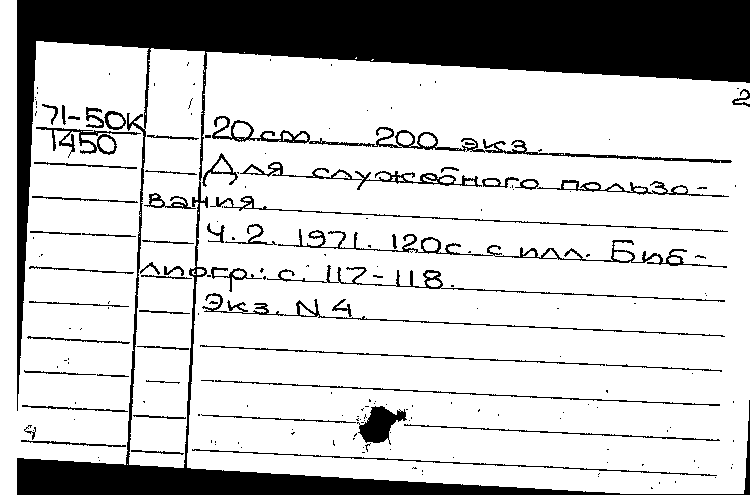 2
71-50К
1450
20см. 200 экз.
Для служебного пользо-
вания.
Ч. 2. 1971. 120с. с илл. Биб-
лиогр.: с. 117-118.
Экз. N 4.